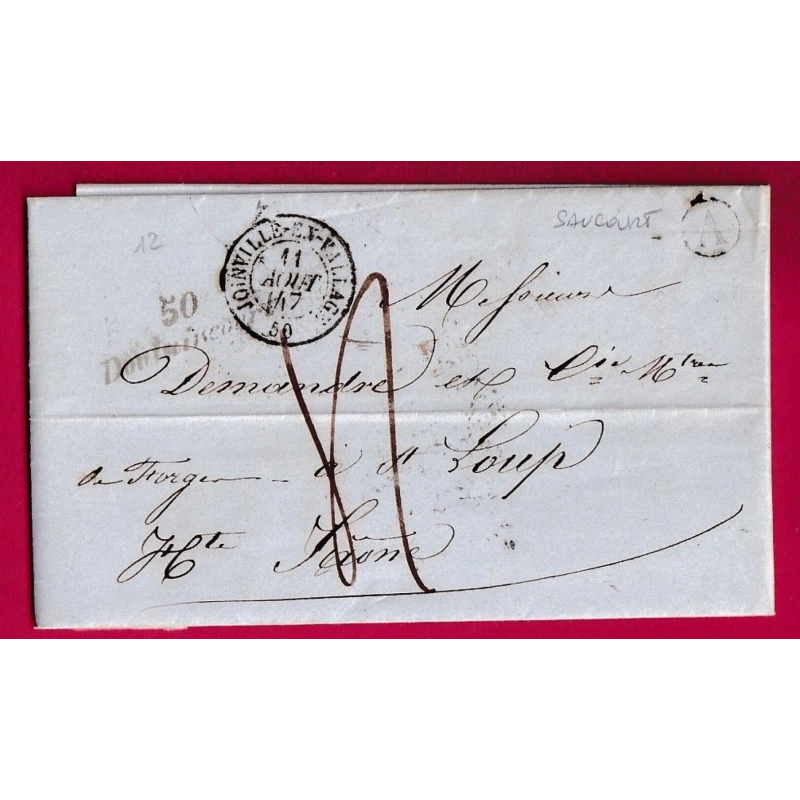 12
SAUCOURT
A
JOINVILLE-EN-VALLAGE
11
AOUT
47
50
50
Messieurs
Demandre et Cie Mtres
de Forges à St Loup
Hte Saône